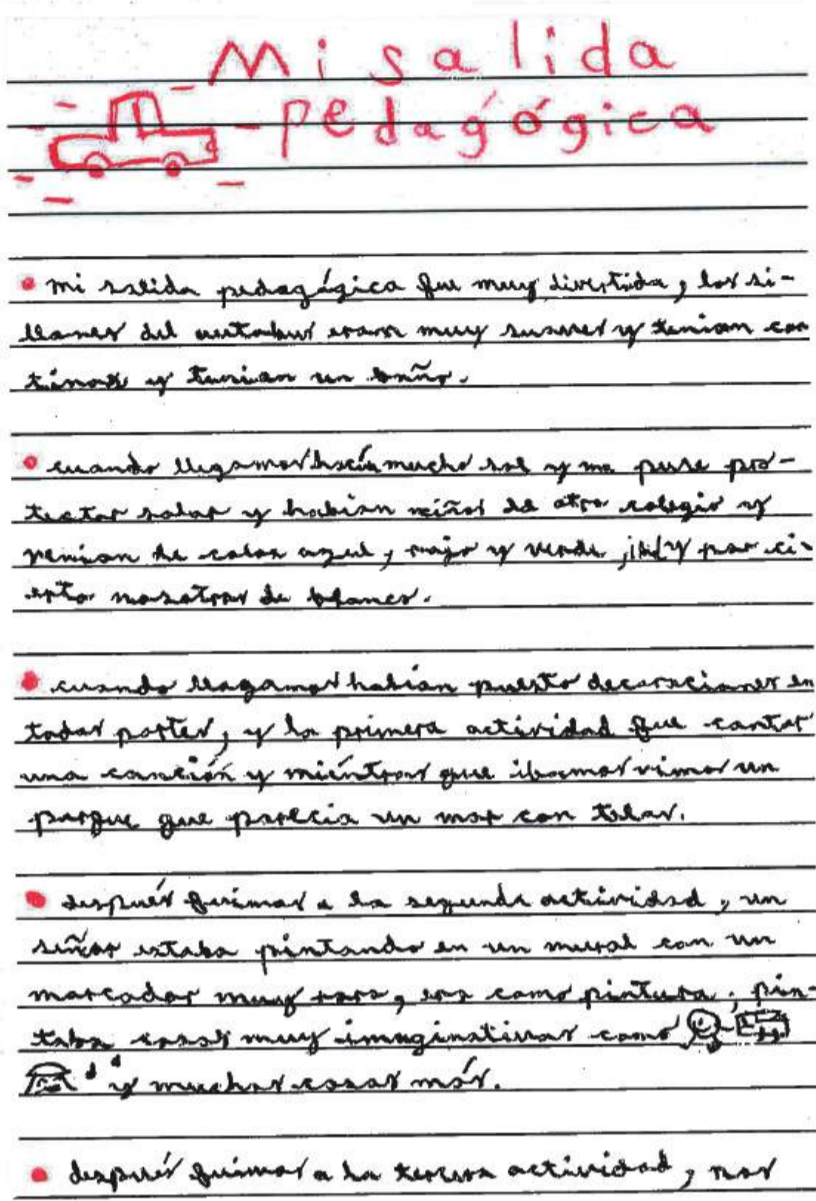 Mi salida
pedagógica
mi salida pedagógica fue muy divertida, los si-
llones del autobus eran muy suaves y tenian cor
tinas y tenian un baño.
cuando llegamos hacía mucho sol y me puse pro-
tector solar y habian niños de otro colegio y
venian de color azul, rojo y verde, y por ci-
erto nosotros de blanco.
cuando llegamos habían puesto decoraciones en
todas partes, y la primera actividad fue cantar
una canción y miéntras que ibamos vimos un
parque que parecia un mar con telas.
después fuimos a la segunda actividad, un
señor estaba pintando en un mural con un
marcador muy raro, era como pintura, pin-
taba cosas muy imaginativas como
y muchas cosas más.
después fuimos a la tercera actividad, nos